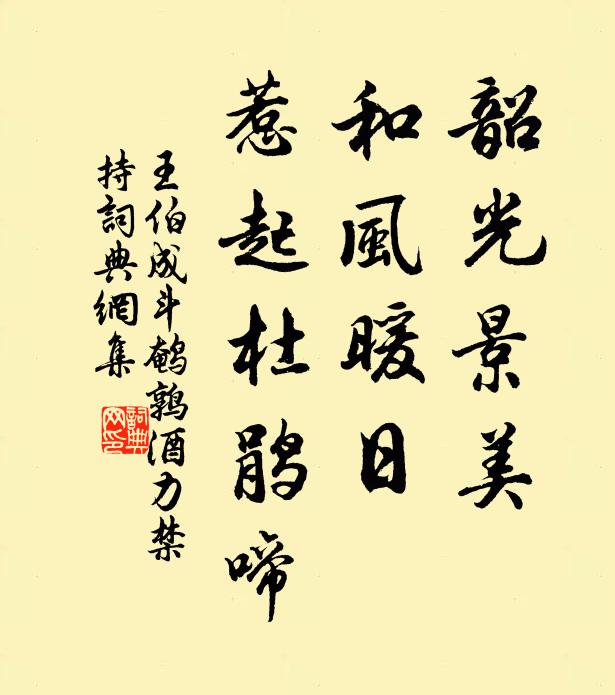 韶光景美
和風暖日
惹起杜鵑啼
王伯成斗鹌鹑酒力禁
持詞典網集
詞典
网印